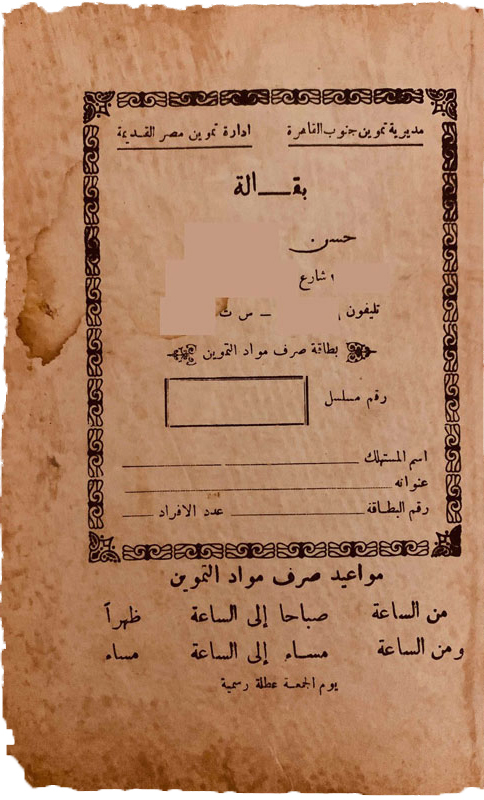 مديرية تموين جنوب القاهرة ادارة تموين مصر القديمة
بقـالة
حسن
١ شارع
تليفون — س ت
بطاقة صرف مواد التموين
رقم مسلسل
اسم المستهلك
عنوانه
رقم البطاقة عدد الافراد
مواعيد صرف مواد التموين
من الساعة صباحا إلى الساعة ظهراً
ومن الساعة مساء إلى الساعة مساء
يوم الجمعة عطلة رسمية